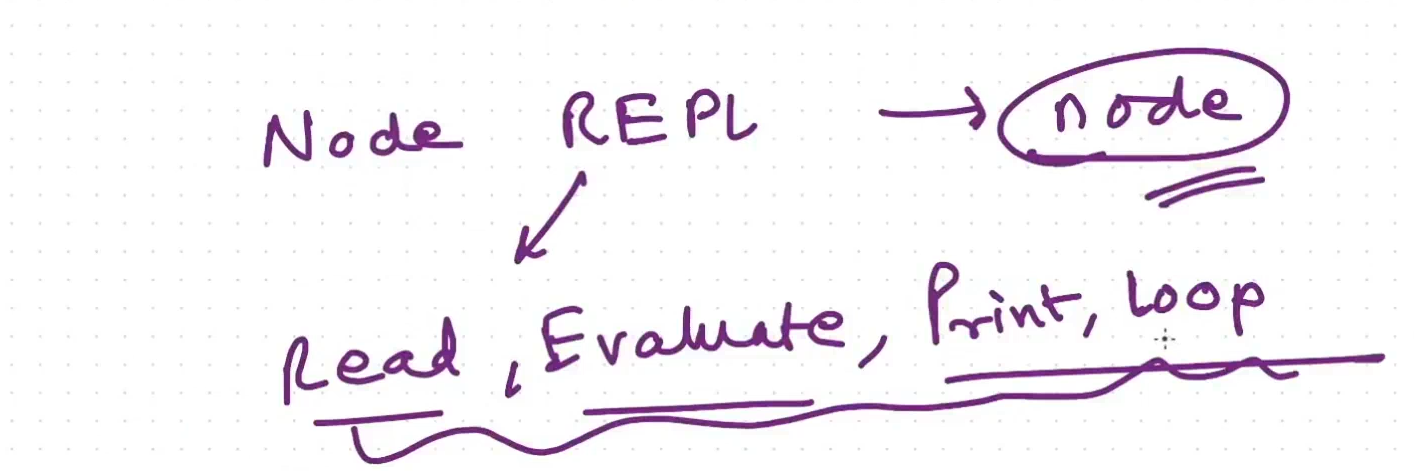 Node REPL → node
Read, Evaluate, Print, Loop